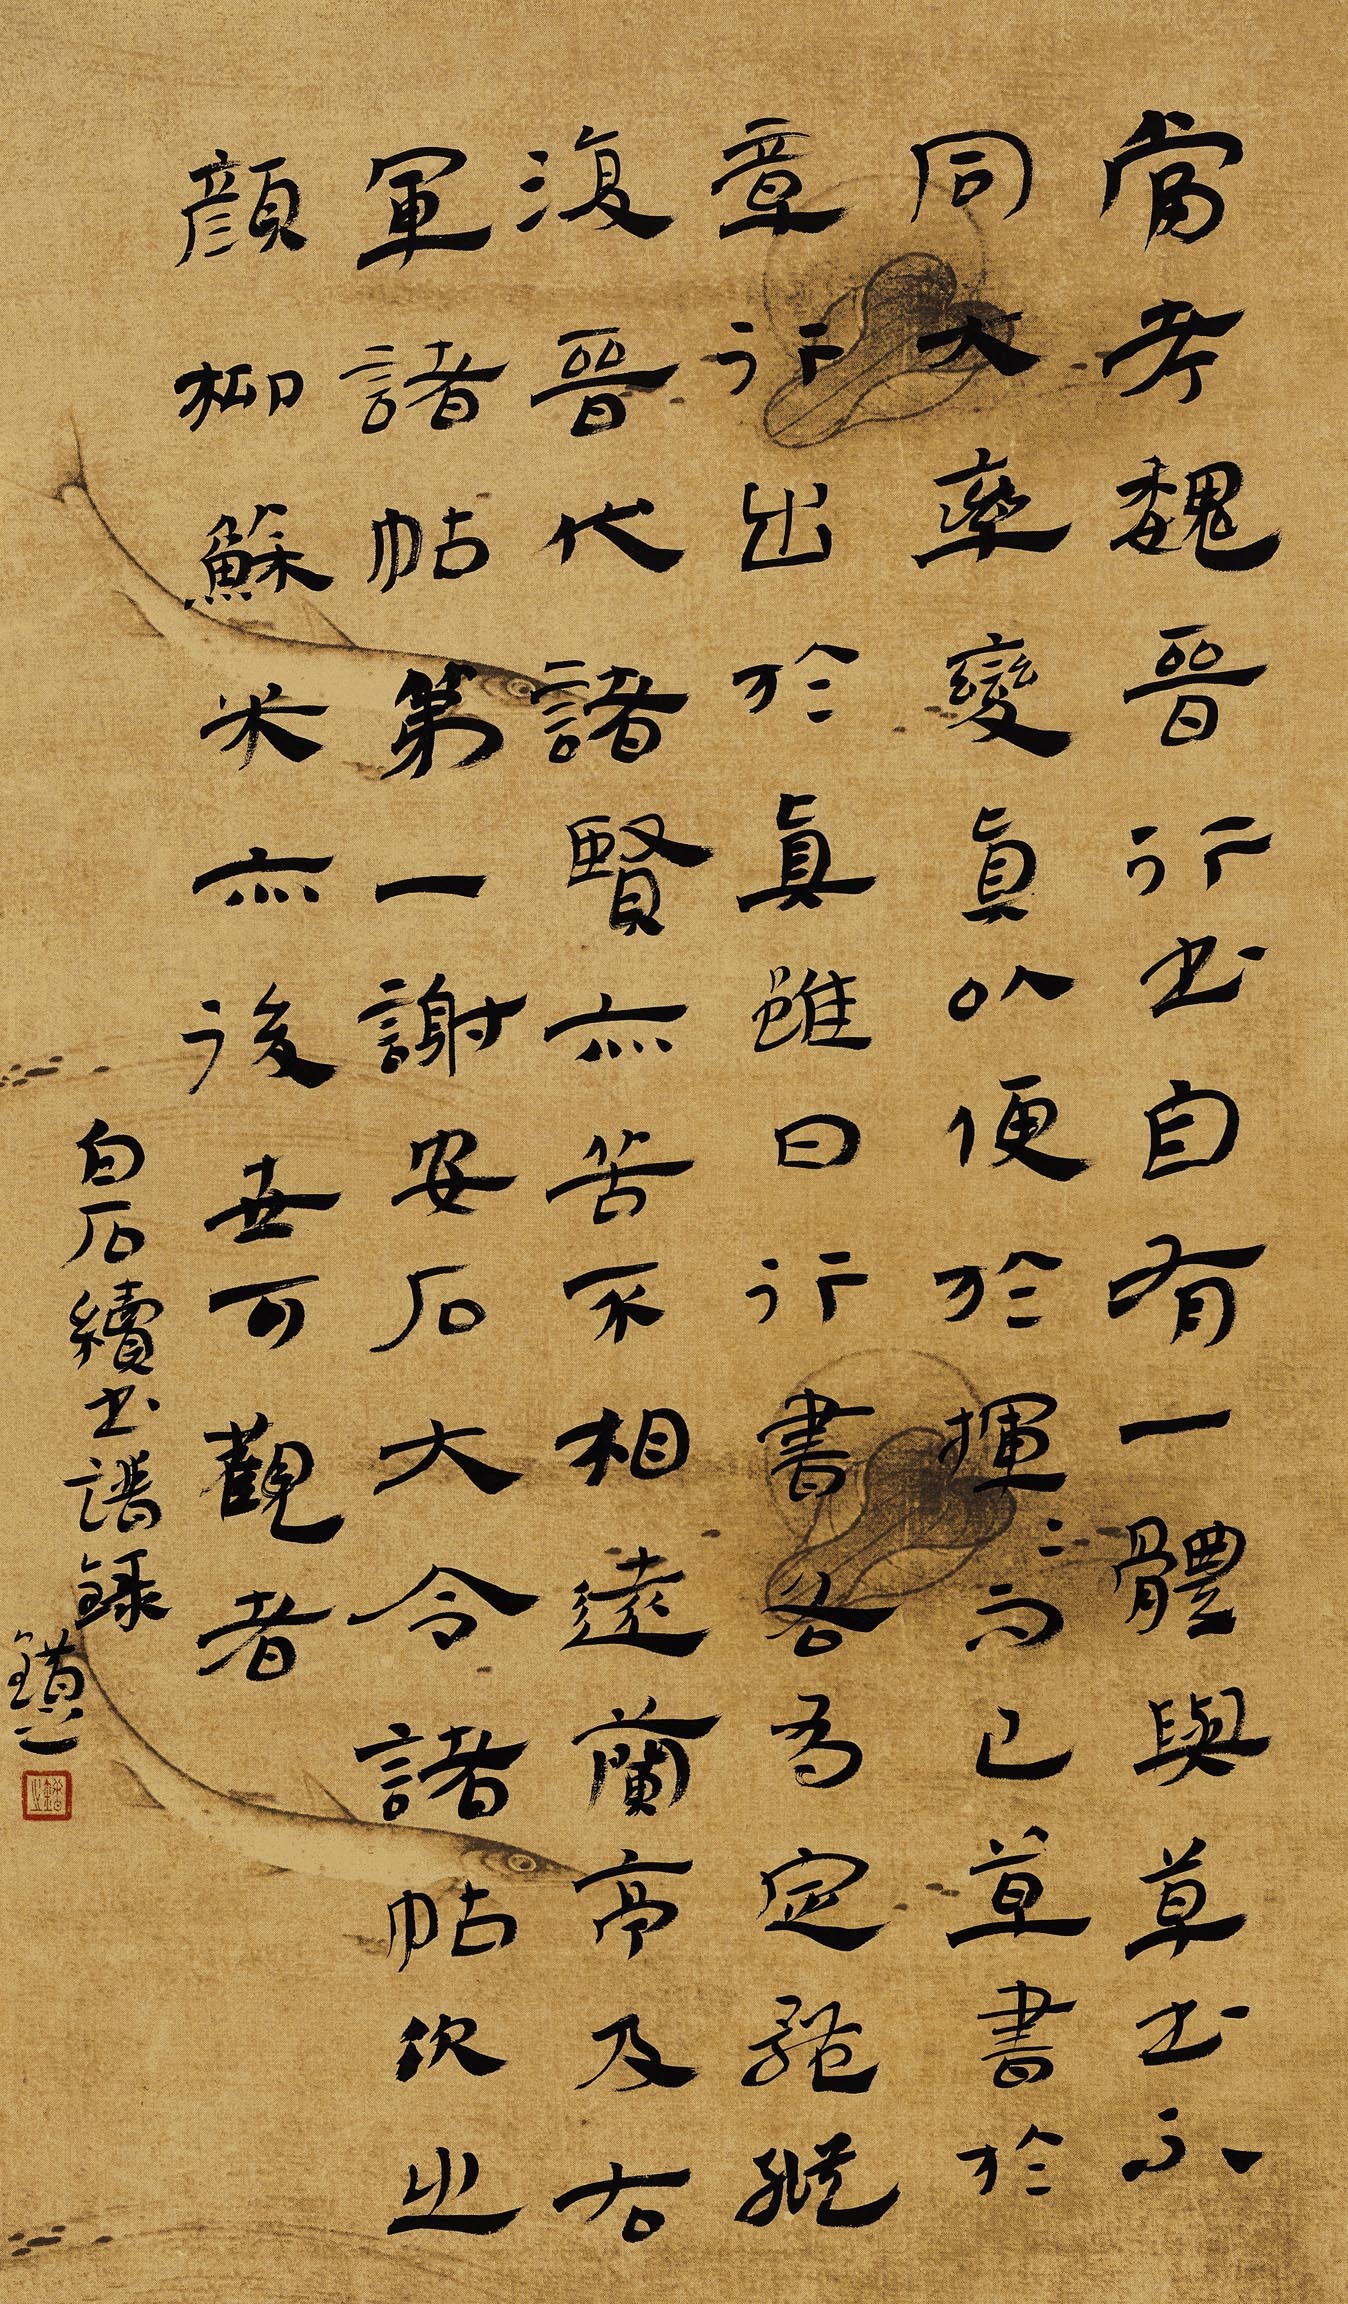 當考魏晉行书自有一體與草书不
同大率變眞以便於揮〻而已草書於
章行出於眞雖曰行書各為定體縱
復晉代諸賢亦苦不相遠蘭亭及右
軍諸帖第一謝安石大令諸帖次之
顏柳蘇米亦後世可觀者
白石續书譜錄